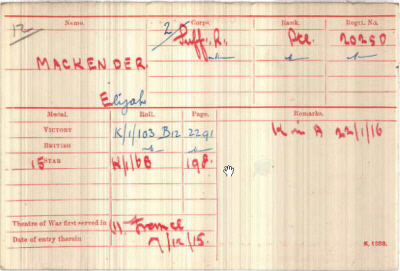 Name. Corps. Rank. Regtl. No.
12 2/ Suff. R. Pte. 20250
MACKENDER.
Elijah
Medal. Roll. Page. Remarks.
VICTORY K/1/103 B12 2291 K in A 22/1/16
BRITISH
15 STAR H/1/6B 198.
Theatre of War first served in (1) France
Date of entry therein 7/12/15.
K. 1380.